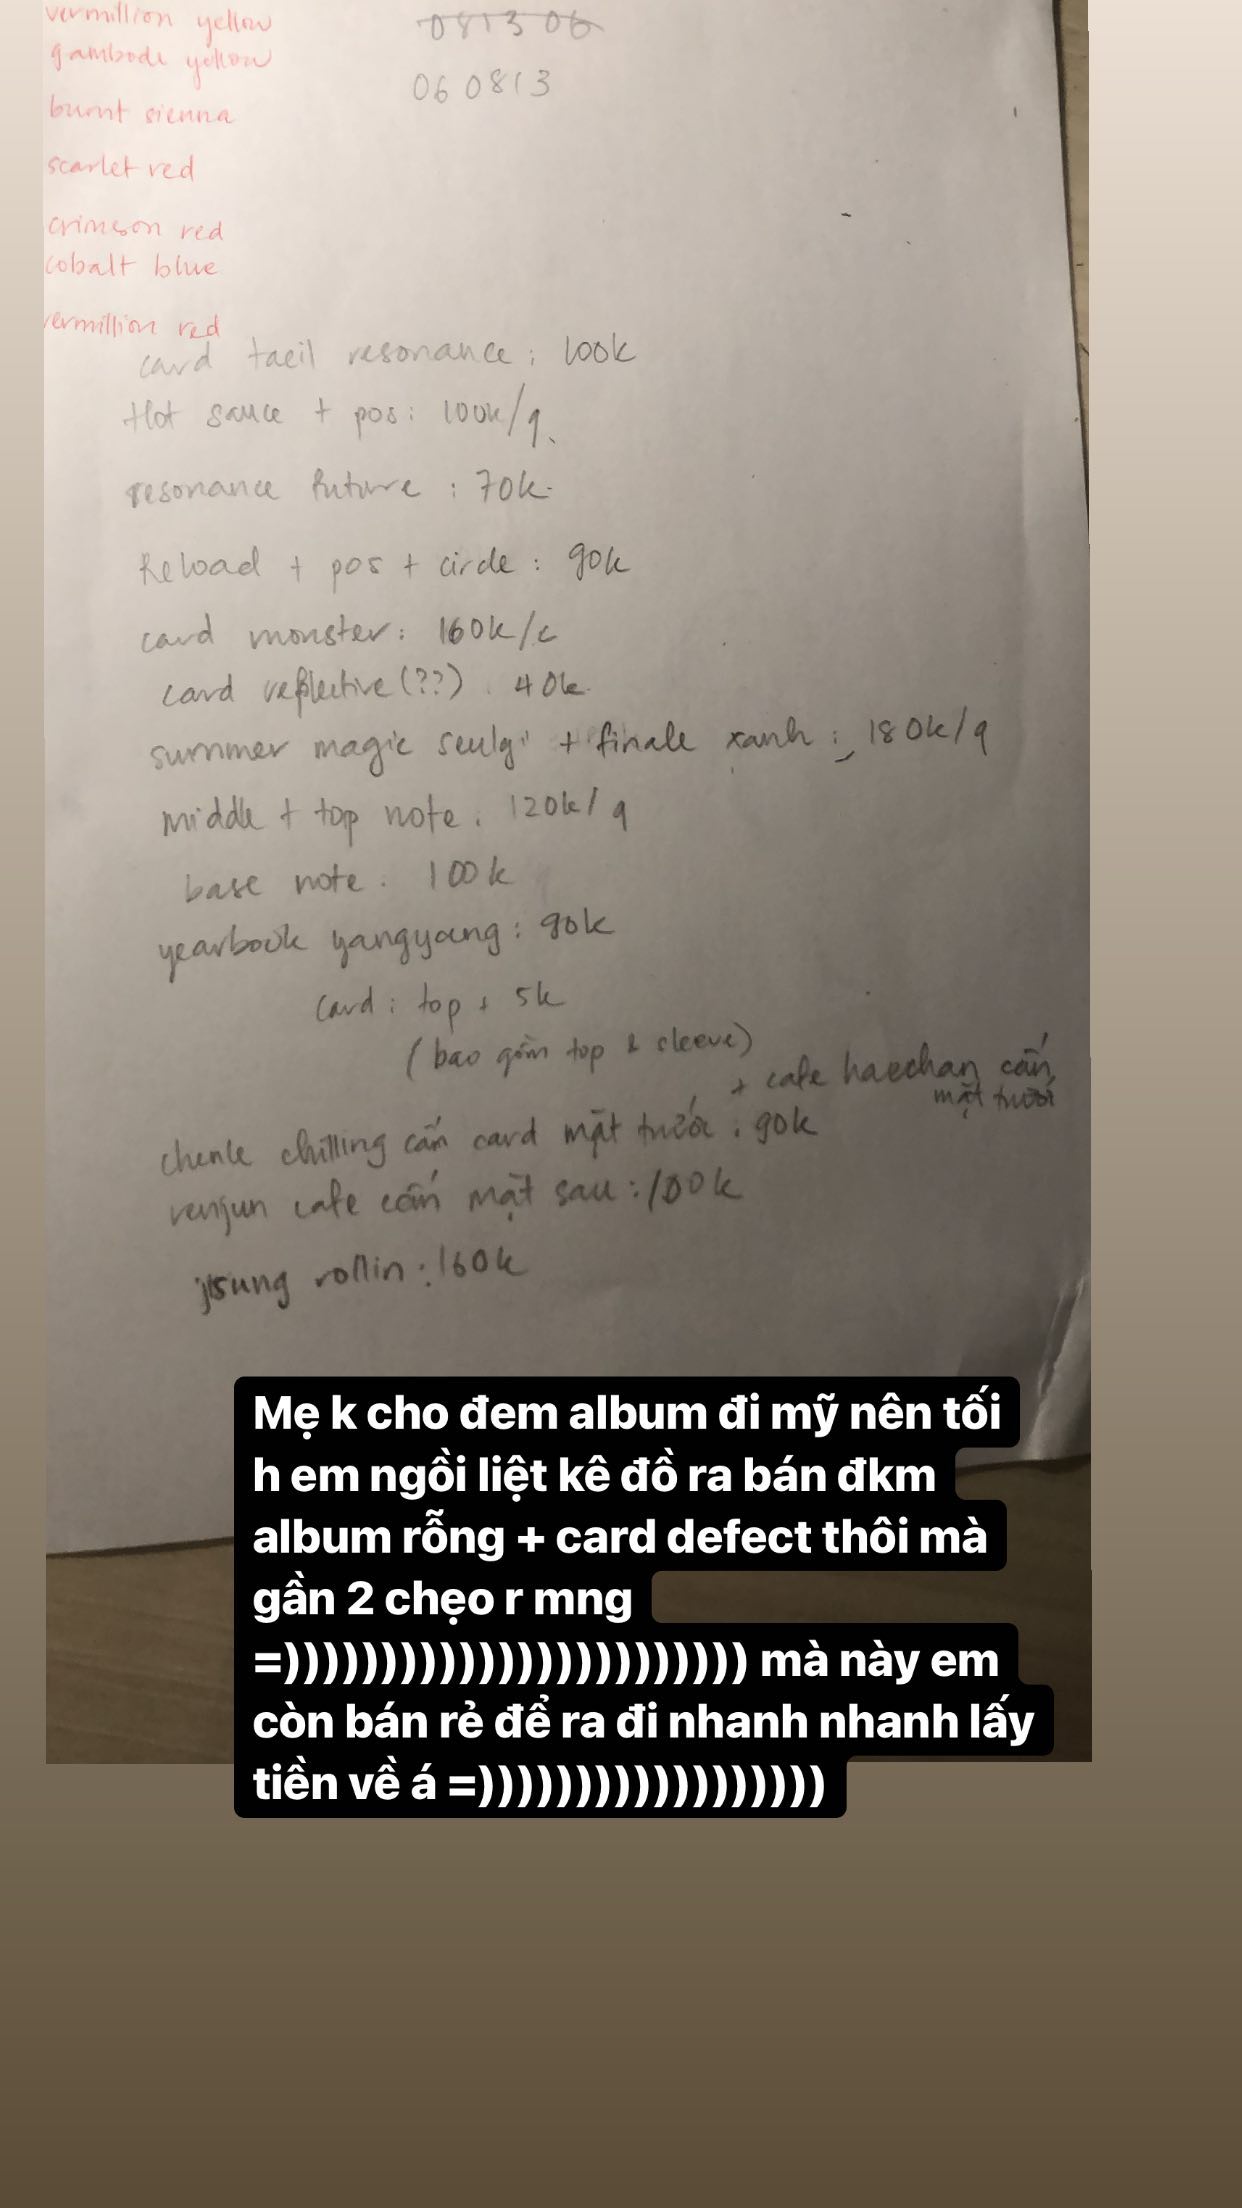 vermillion yellow
gambode yellow
burnt sienna
scarlet red
crimson red
cobalt blue
vermillion red
081306
060813
card taeil resonance : 100k
Hot sauce + pos : 100k/q
resonance future : 70k
Reload + pos + circle : 90k
card monster : 160k/c
card reflective (??) . 40k
summer magic seulgi + finale xanh : 180k/q
middle + top note . 120k/q
base note . 100k
yearbook yangyang : 90k
card : top + 5k
(bao gồm top & sleeve)
+ cafe haechan cấn
mặt trước
chenle chilling cấn card mặt trước : 90k
renjun cafe cấn mặt sau : 100k
jisung rollin : 160k
Mẹ k cho đem album đi mỹ nên tối
h em ngồi liệt kê đồ ra bán đkm
album rỗng + card defect thôi mà
gần 2 chẹo r mng
=)))))))))))))))))))))))) mà này em
còn bán rẻ để ra đi nhanh nhanh lấy
tiền về á =))))))))))))))))))